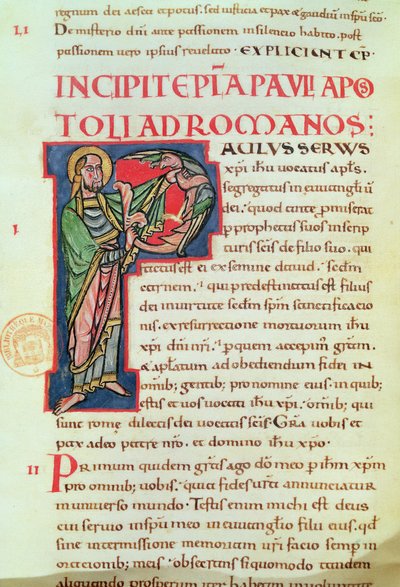 regnum dei aesca et potus. sed iusticia et pax & gaudiū inspū sc̄o.
LI De misterio dn̄i ante passionem insilencio habito. post
passionem uero ipsius reuelato. EXPLICIANT CP̄.
INCIPIT EPĪA PAVLI APOS
TOLI AD ROMANOS:
PAULUS SERVUS
xp̄i ih̄u uocatus apl̄s.
segregatus in euuangliū
dei. quod ante promiserat
I pprophetas suos inscrip
turis sc̄is de filio suo. qui
factus est ei exsemine dauid. sedm̄
carnem. & qui predestinatus est filius
dei inuirtute sedm̄ spm̄ sanctificacio
nis. exresurrectione mortuorum ih̄u
xp̄i dn̄i nr̄i. pquem accepim; grām.
& apl̄atum adobediendum fidei IN
omib; gentib; pro nomine eius. in quib;
estis et uos uocati ih̄u xp̄i. omib; qui
sunt rome dilectis dei uocatis sc̄is. Grā uobis et
pax a deo patre nr̄o. et domino ih̄u xp̄o.
II Primum quidem grās ago dō meo p ih̄m xp̄m
pro omnib; uobis. quia fides ur̄a annunciatur
in uniuerso mundo. Testis enim michi est deus
cui seruio inspū meo in euuanglio filii eius. qd̄
sine intermissione memoriam ur̄i facio semp in
orationib; meis. obsecrans siquomodo tandem
aliquando prosperum iter habeam inuoluntate